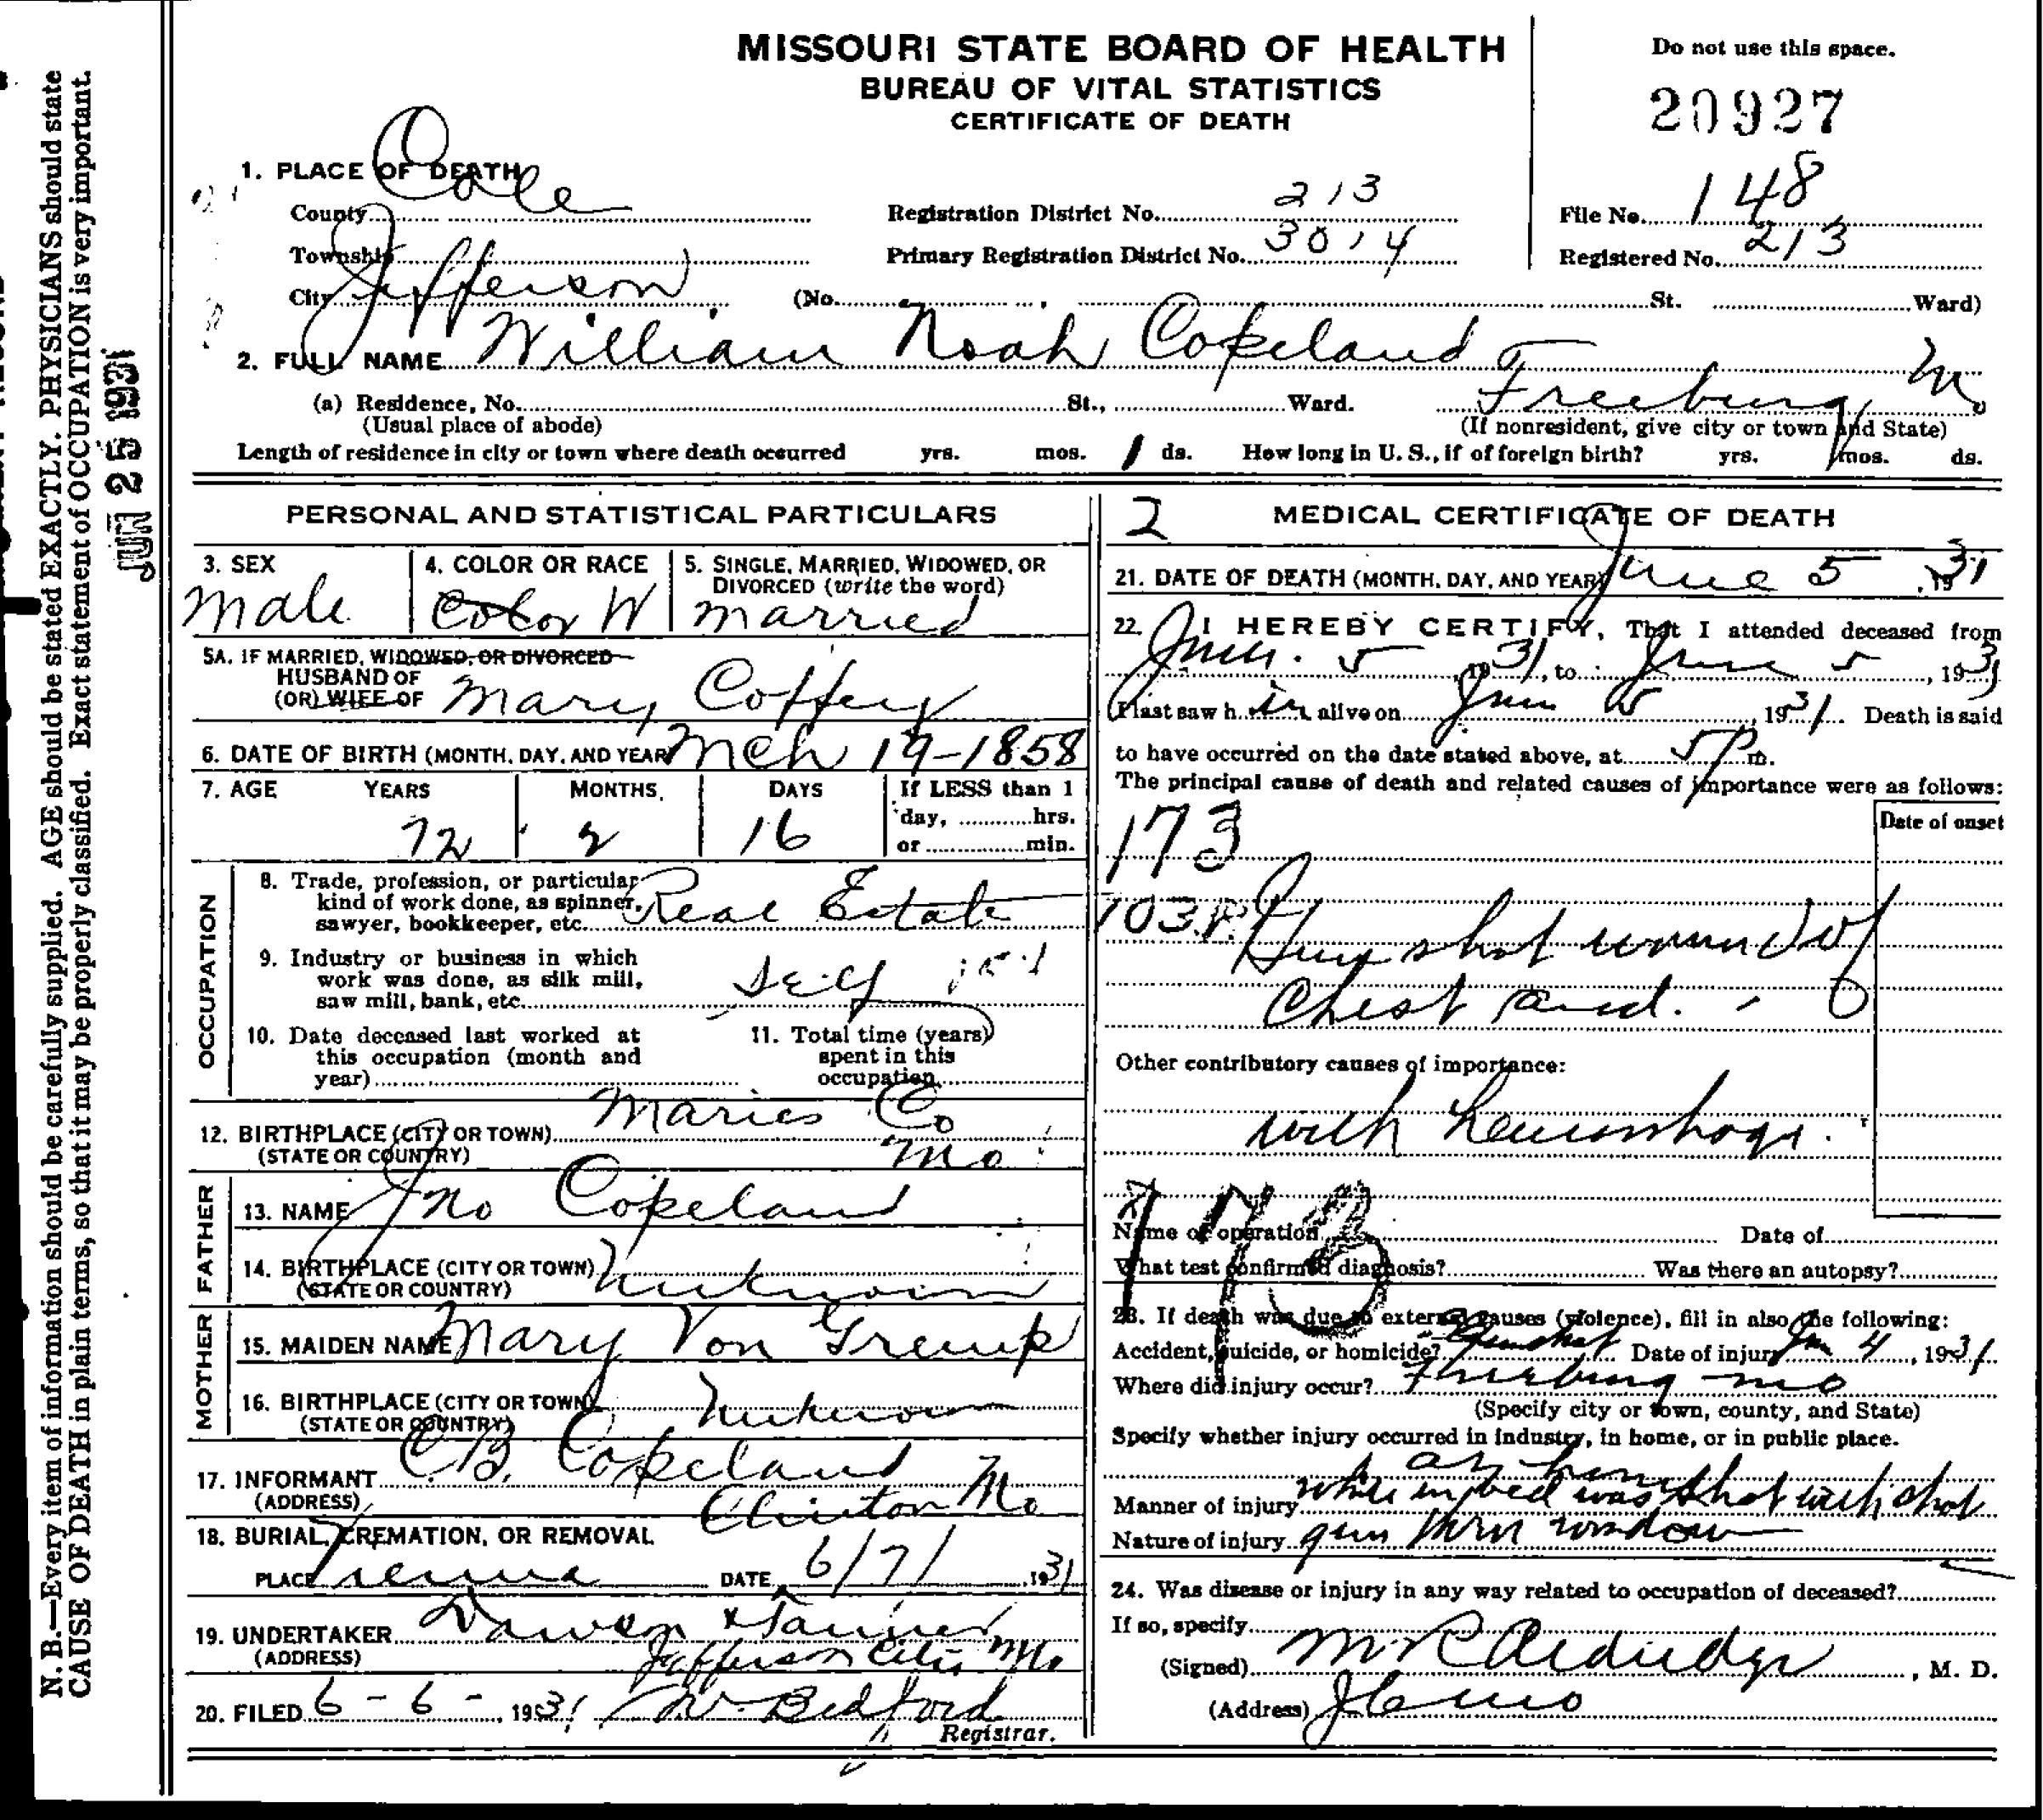 MISSOURI STATE BOARD OF HEALTH
BUREAU OF VITAL STATISTICS
CERTIFICATE OF DEATH
Do not use this space.
20927
1. PLACE OF DEATH
County Cole
Registration District No. 213
File No. 148
Township
Primary Registration District No. 3014
Registered No. 213
City Jefferson (No. , St. Ward)
2. FULL NAME William Noah Copeland
(a) Residence, No. St., Ward. Freeburg Mo
(Usual place of abode) (If nonresident, give city or town and State)
Length of residence in city or town where death occurred yrs. mos. 1 ds. How long in U. S., if of foreign birth? yrs. mos. ds.
PERSONAL AND STATISTICAL PARTICULARS
3. SEX 4. COLOR OR RACE 5. SINGLE, MARRIED, WIDOWED, OR DIVORCED (write the word)
Male Color W Married
5A. IF MARRIED, WIDOWED, OR DIVORCED
HUSBAND OF
(OR) WIFE OF Mary Coffey
6. DATE OF BIRTH (MONTH, DAY, AND YEAR) Mch 19-1858
7. AGE YEARS MONTHS DAYS If LESS than 1
day, hrs.
or min.
72 2 16
OCCUPATION
8. Trade, profession, or particular
kind of work done, as spinner,
sawyer, bookkeeper, etc. Real Estate
9. Industry or business in which
work was done, as silk mill,
saw mill, bank, etc. Self
10. Date deceased last worked at
this occupation (month and
year)
11. Total time (years)
spent in this
occupation
12. BIRTHPLACE (CITY OR TOWN) Maries Co
(STATE OR COUNTRY) Mo
FATHER
13. NAME Jno Copeland
14. BIRTHPLACE (CITY OR TOWN)
(STATE OR COUNTRY) Unknown
MOTHER
15. MAIDEN NAME Mary Von Gremp
16. BIRTHPLACE (CITY OR TOWN)
(STATE OR COUNTRY) Unknown
17. INFORMANT C.B. Copeland
(ADDRESS) Clinton Mo
18. BURIAL, CREMATION, OR REMOVAL
PLACE Vienna DATE 6/7/ 1931
19. UNDERTAKER Dawson & Tanner
(ADDRESS) Jefferson City Mo
20. FILED 6-6-, 1931 W. Bedford
Registrar.
2 MEDICAL CERTIFICATE OF DEATH
21. DATE OF DEATH (MONTH, DAY, AND YEAR) June 5, 1931
22. I HEREBY CERTIFY, That I attended deceased from
June 5 1931, to June 5, 1931
I last saw him alive on June 5, 1931. Death is said
to have occurred on the date stated above, at 5 P m.
The principal cause of death and related causes of importance were as follows:
Date of onset
173
103
Gun shot wound of
Chest and.
Other contributory causes of importance:
with hemorrhage.
173
Name of operation Date of
What test confirmed diagnosis? Was there an autopsy?
23. If death was due to external causes (violence), fill in also the following:
Accident, suicide, or homicide? Gunshot Date of injury Jun 4, 1931
Where did injury occur? Freeburg Mo
(Specify city or town, county, and State)
Specify whether injury occurred in industry, in home, or in public place.
at home
Manner of injury while in bed was shot with shot
Nature of injury gun thru window
24. Was disease or injury in any way related to occupation of deceased?
If so, specify
(Signed) , M. D.
(Address) JC Mo
N. B.—Every item of information should be carefully supplied. AGE should be stated EXACTLY. PHYSICIANS should state
CAUSE OF DEATH in plain terms, so that it may be properly classified. Exact statement of OCCUPATION is very important.
JUN 25 1931